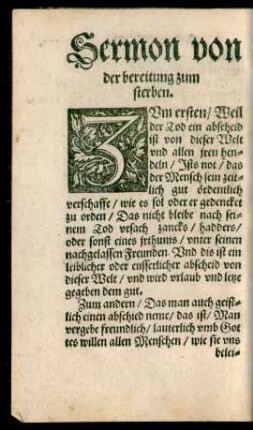 Sermon von
der bereitung zum
sterben.
ZVm ersten/ Weil
der Tod ein abscheid
ist von dieser Welt
vnd allen jren hen-
deln/ Ists not/ das
der Mensch sein zeit-
lich gut ördentlich
verschaffe/ wie es sol oder er gedencket
zu orden/ Das nicht bleibe nach sei-
nem Tod vrsach zancks/ hadders/
oder sonst eines jrthums/ vnter seinen
nachgelassen Freunden. Vnd dis ist ein
leiblicher oder eusserlicher abscheid von
dieser Welt/ vnd wird vrlaub vnd letze
gegeben dem gut.
Zum andern/ Das man auch geist-
lich einen abschied neme/ das ist/ Man
vergebe freundlich/ lauterlich vmb Got
tes willen allen Menschen/ wie sie vns
belei-